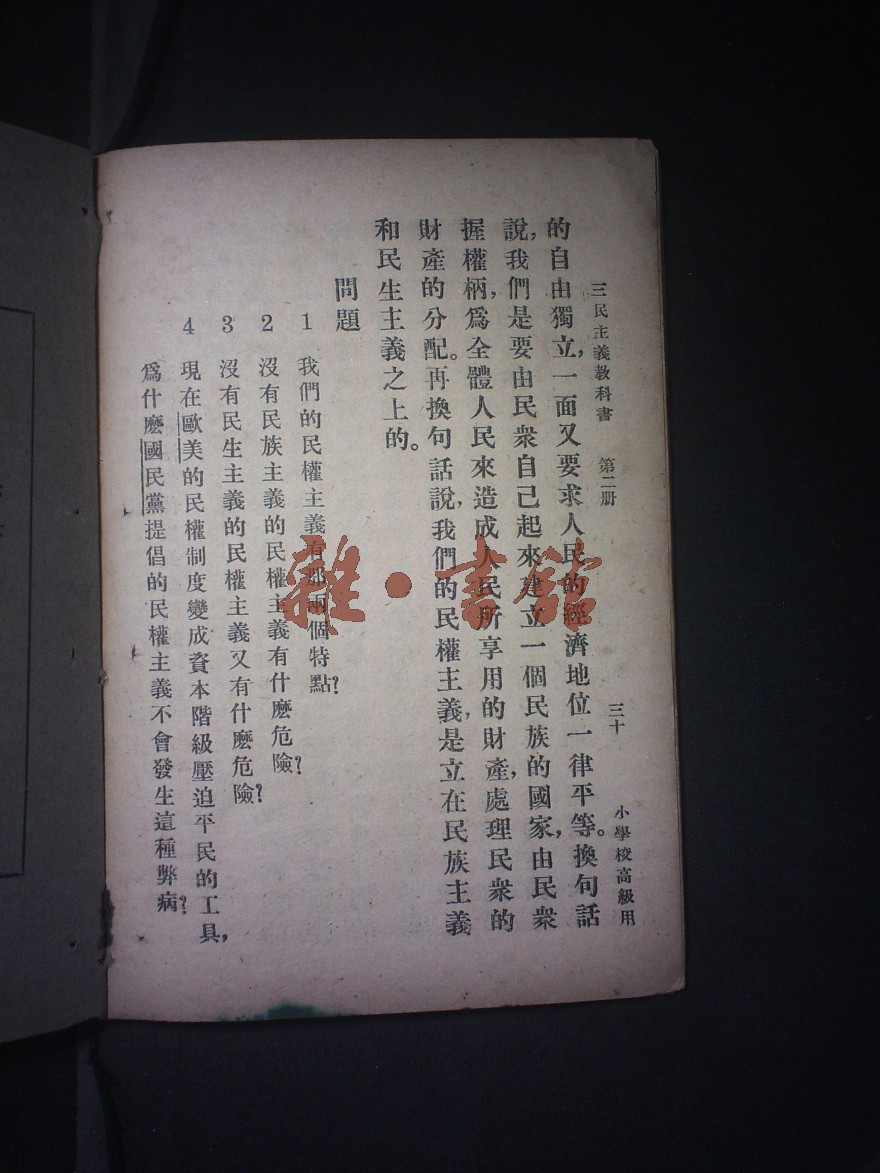 三民主義教科書 第二册 三十 小學校高級用
的自由獨立,一面又要求人民的經濟地位一律平等。換句話
說,我們是要由民衆自己起來建立一個民族的國家,由民衆
握權柄,爲全體人民來造成人民所享用的財產,處理民衆的
財產的分配。再換句話說,我們的民權主義,是立在民族主義
和民生主義之上的。
問題
1 我們的民權主義有那兩個特點?
2 沒有民族主義的民權主義有什麽危險?
3 沒有民生主義的民權主義又有什麽危險?
4 現在歐美的民權制度變成資本階級壓迫平民的工具,
爲什麽國民黨提倡的民權主義不會發生這種弊病?
雜·書館